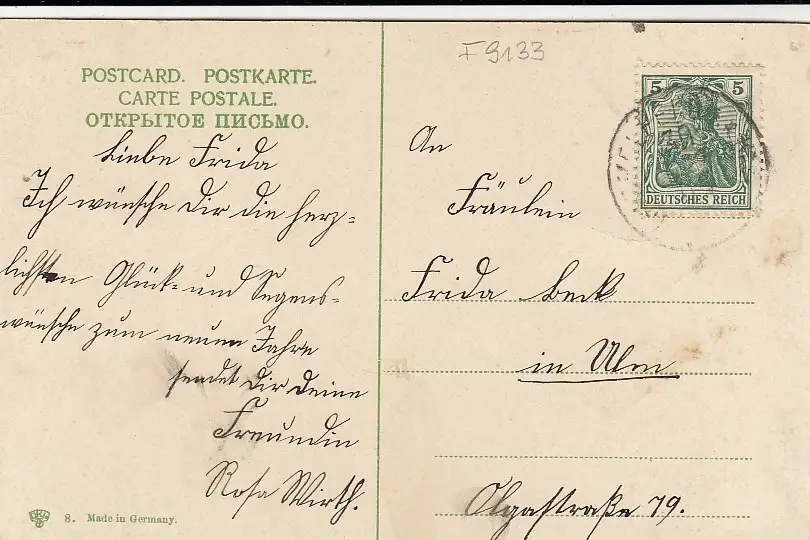 F 9133
POSTCARD. POSTKARTE.
CARTE POSTALE.
ОТКРЫТОЕ ПИСЬМО.
Liebe Frida
Ich wünsche Dir die herz-
lichsten Glück- und Segens-
wünsche zum neuen Jahre
sendet Dir Deine
Freundin
Rosa Wirth.
8. Made in Germany.
5 5
DEUTSCHES REICH
An
Fräulein
Frida Beck
in Ulm
Olgastraße 79.